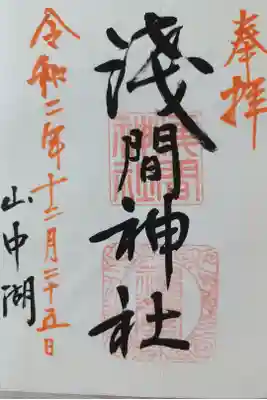 奉拝
淺間神社
山中湖
令和二年十二月二十五日